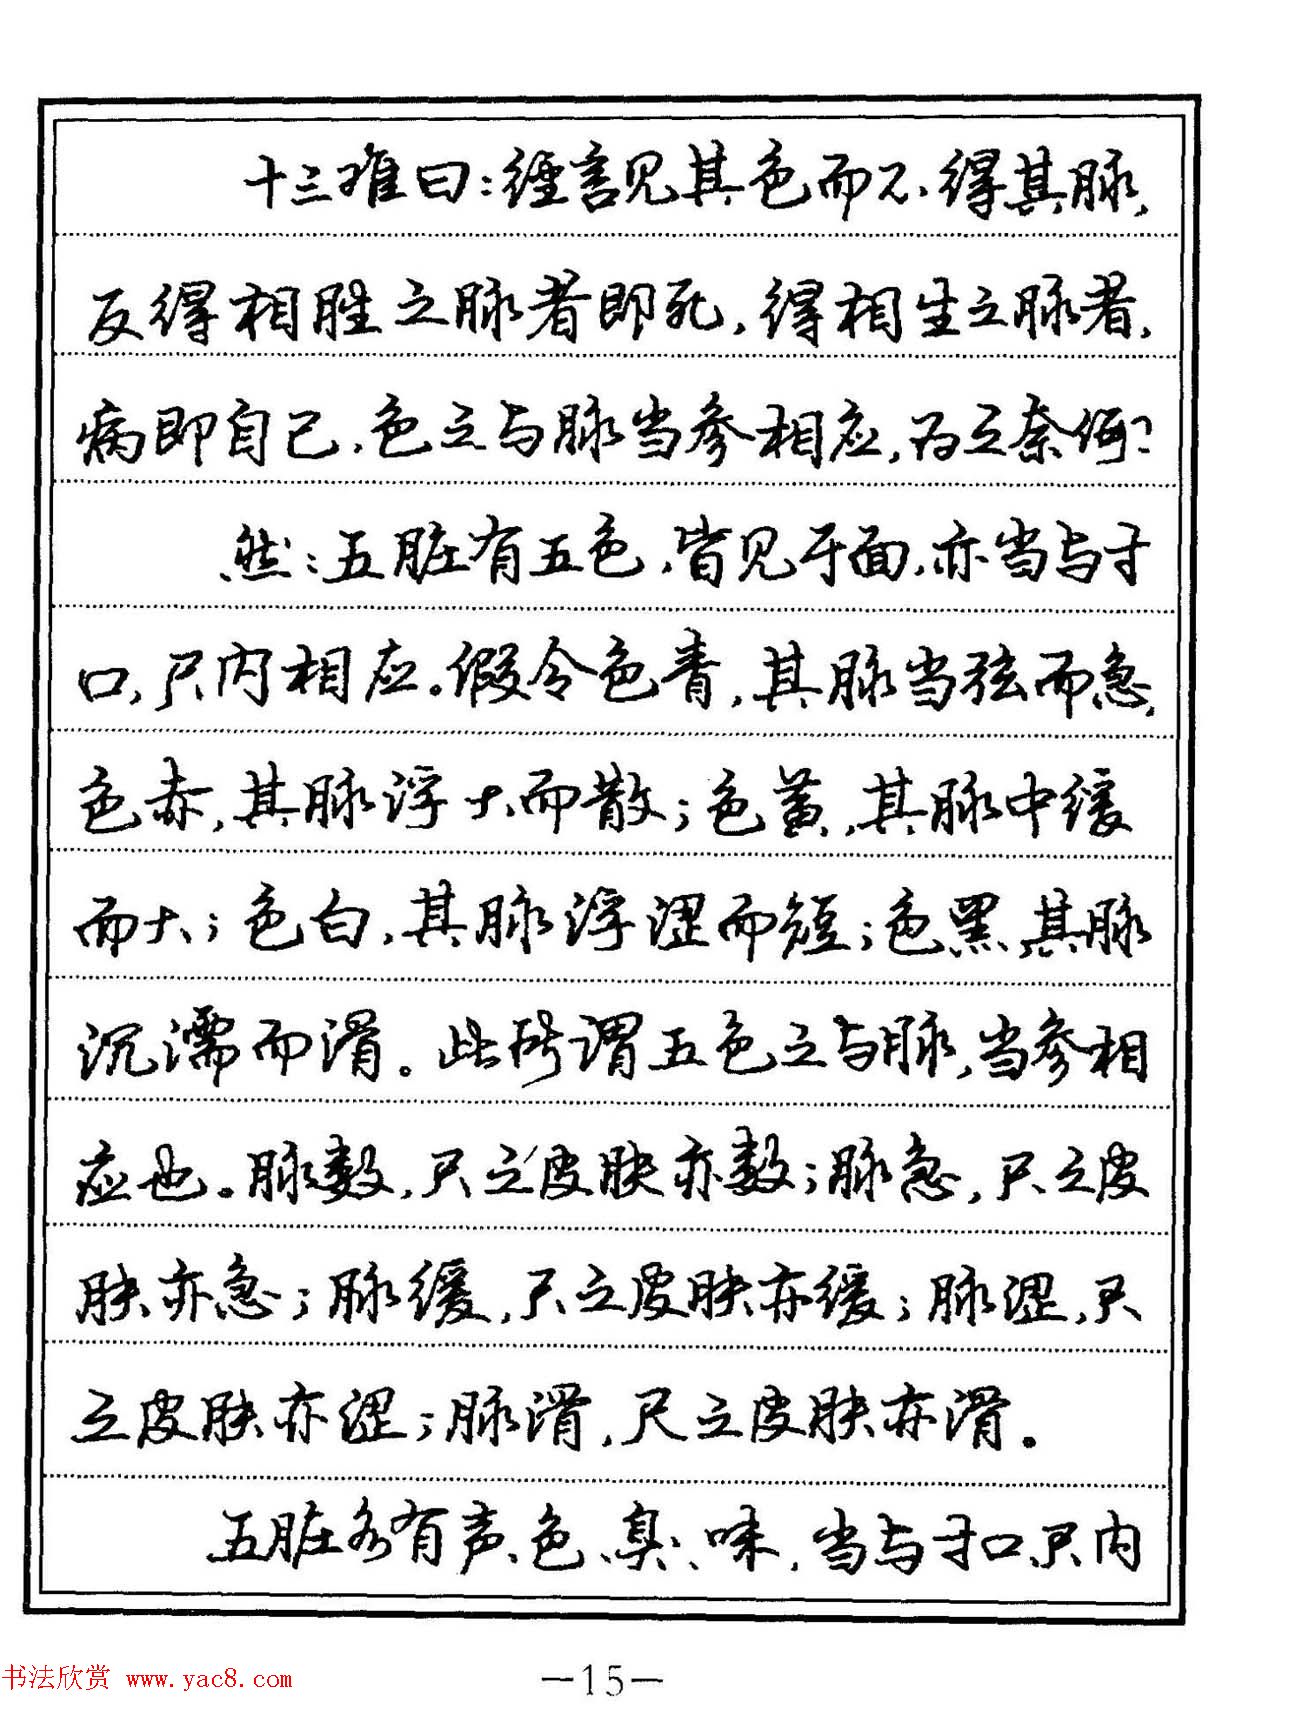 十三难曰：经言见其色而不得其脉，
反得相胜之脉者即死，得相生之脉者，
病即自己，色之与脉当参相应，为之奈何？
然：五脏有五色，皆见于面，亦当与寸
口，尺内相应。假令色青，其脉当弦而急，
色赤，其脉浮大而散；色黄，其脉中缓
而大；色白，其脉浮涩而短；色黑，其脉
沉濡而滑。此所谓五色之与脉，当参相
应也。脉数，尺之皮肤亦数；脉急，尺之皮
肤亦急；脉缓，尺之皮肤亦缓；脉涩，尺
之皮肤亦涩；脉滑，尺之皮肤亦滑。
五脏各有声、色、臭、味，当与寸口、尺内
书法欣赏 www.yac8.com
—15—